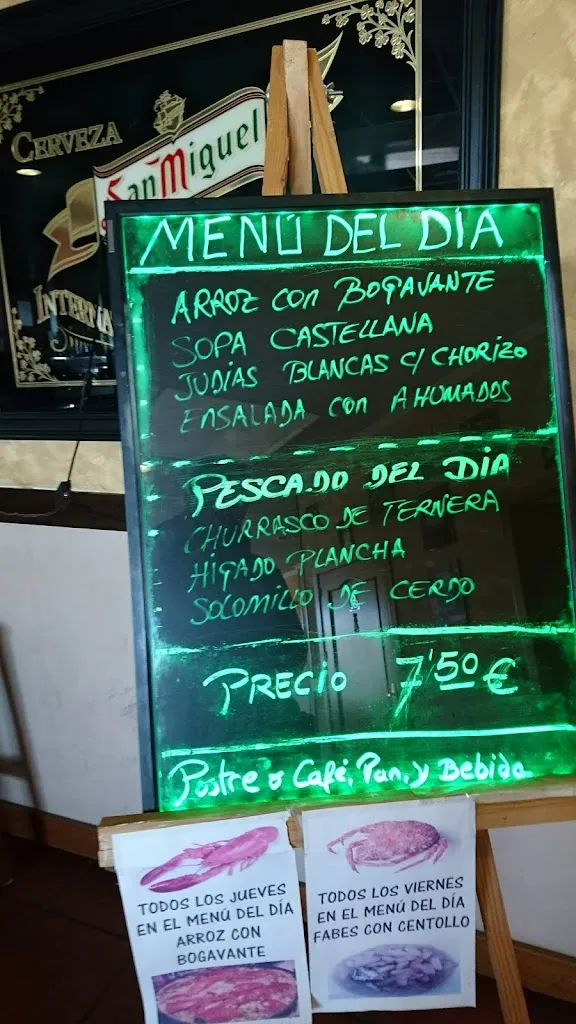 CERVEZA
San Miguel
INTERNA
MENÚ DEL DÍA
ARROZ con BOGAVANTE
SOPA CASTELLANA
JUDÍAS BLANCAS C/ CHORIZO
ENSALADA con AHUMADOS
PESCADO DEL DIA
CHURRASCO DE TERNERA
HIGADO PLANCHA
SOLOMILLO DE CERDO
PRECIO 7'50 €
Postre o Café, Pan, y Bebida
TODOS LOS JUEVES
EN EL MENÚ DEL DÍA
ARROZ CON
BOGAVANTE
TODOS LOS VIERNES
EN EL MENÚ DEL DÍA
FABES CON CENTOLLO